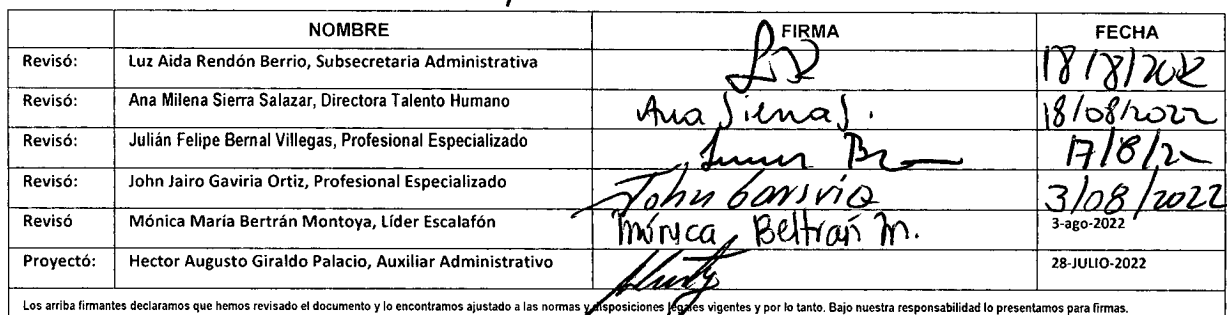 NOMBRE FIRMA FECHA
Revisó: Luz Aida Rendón Berrio, Subsecretaria Administrativa 18/8/2022
Revisó: Ana Milena Sierra Salazar, Directora Talento Humano Ana Sierra S. 18/08/2022
Revisó: Julián Felipe Bernal Villegas, Profesional Especializado 17/8/2
Revisó: John Jairo Gaviria Ortiz, Profesional Especializado John Gaviria 3/08/2022
Revisó Mónica María Bertrán Montoya, Líder Escalafón Mónica Beltrán M. 3-ago-2022
Proyectó: Hector Augusto Giraldo Palacio, Auxiliar Administrativo 28-JULIO-2022
Los arriba firmantes declaramos que hemos revisado el documento y lo encontramos ajustado a las normas y disposiciones legales vigentes y por lo tanto. Bajo nuestra responsabilidad lo presentamos para firmas.